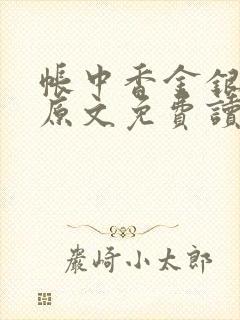 帳中香金銀
原文免費讀
嚴崎小太郎